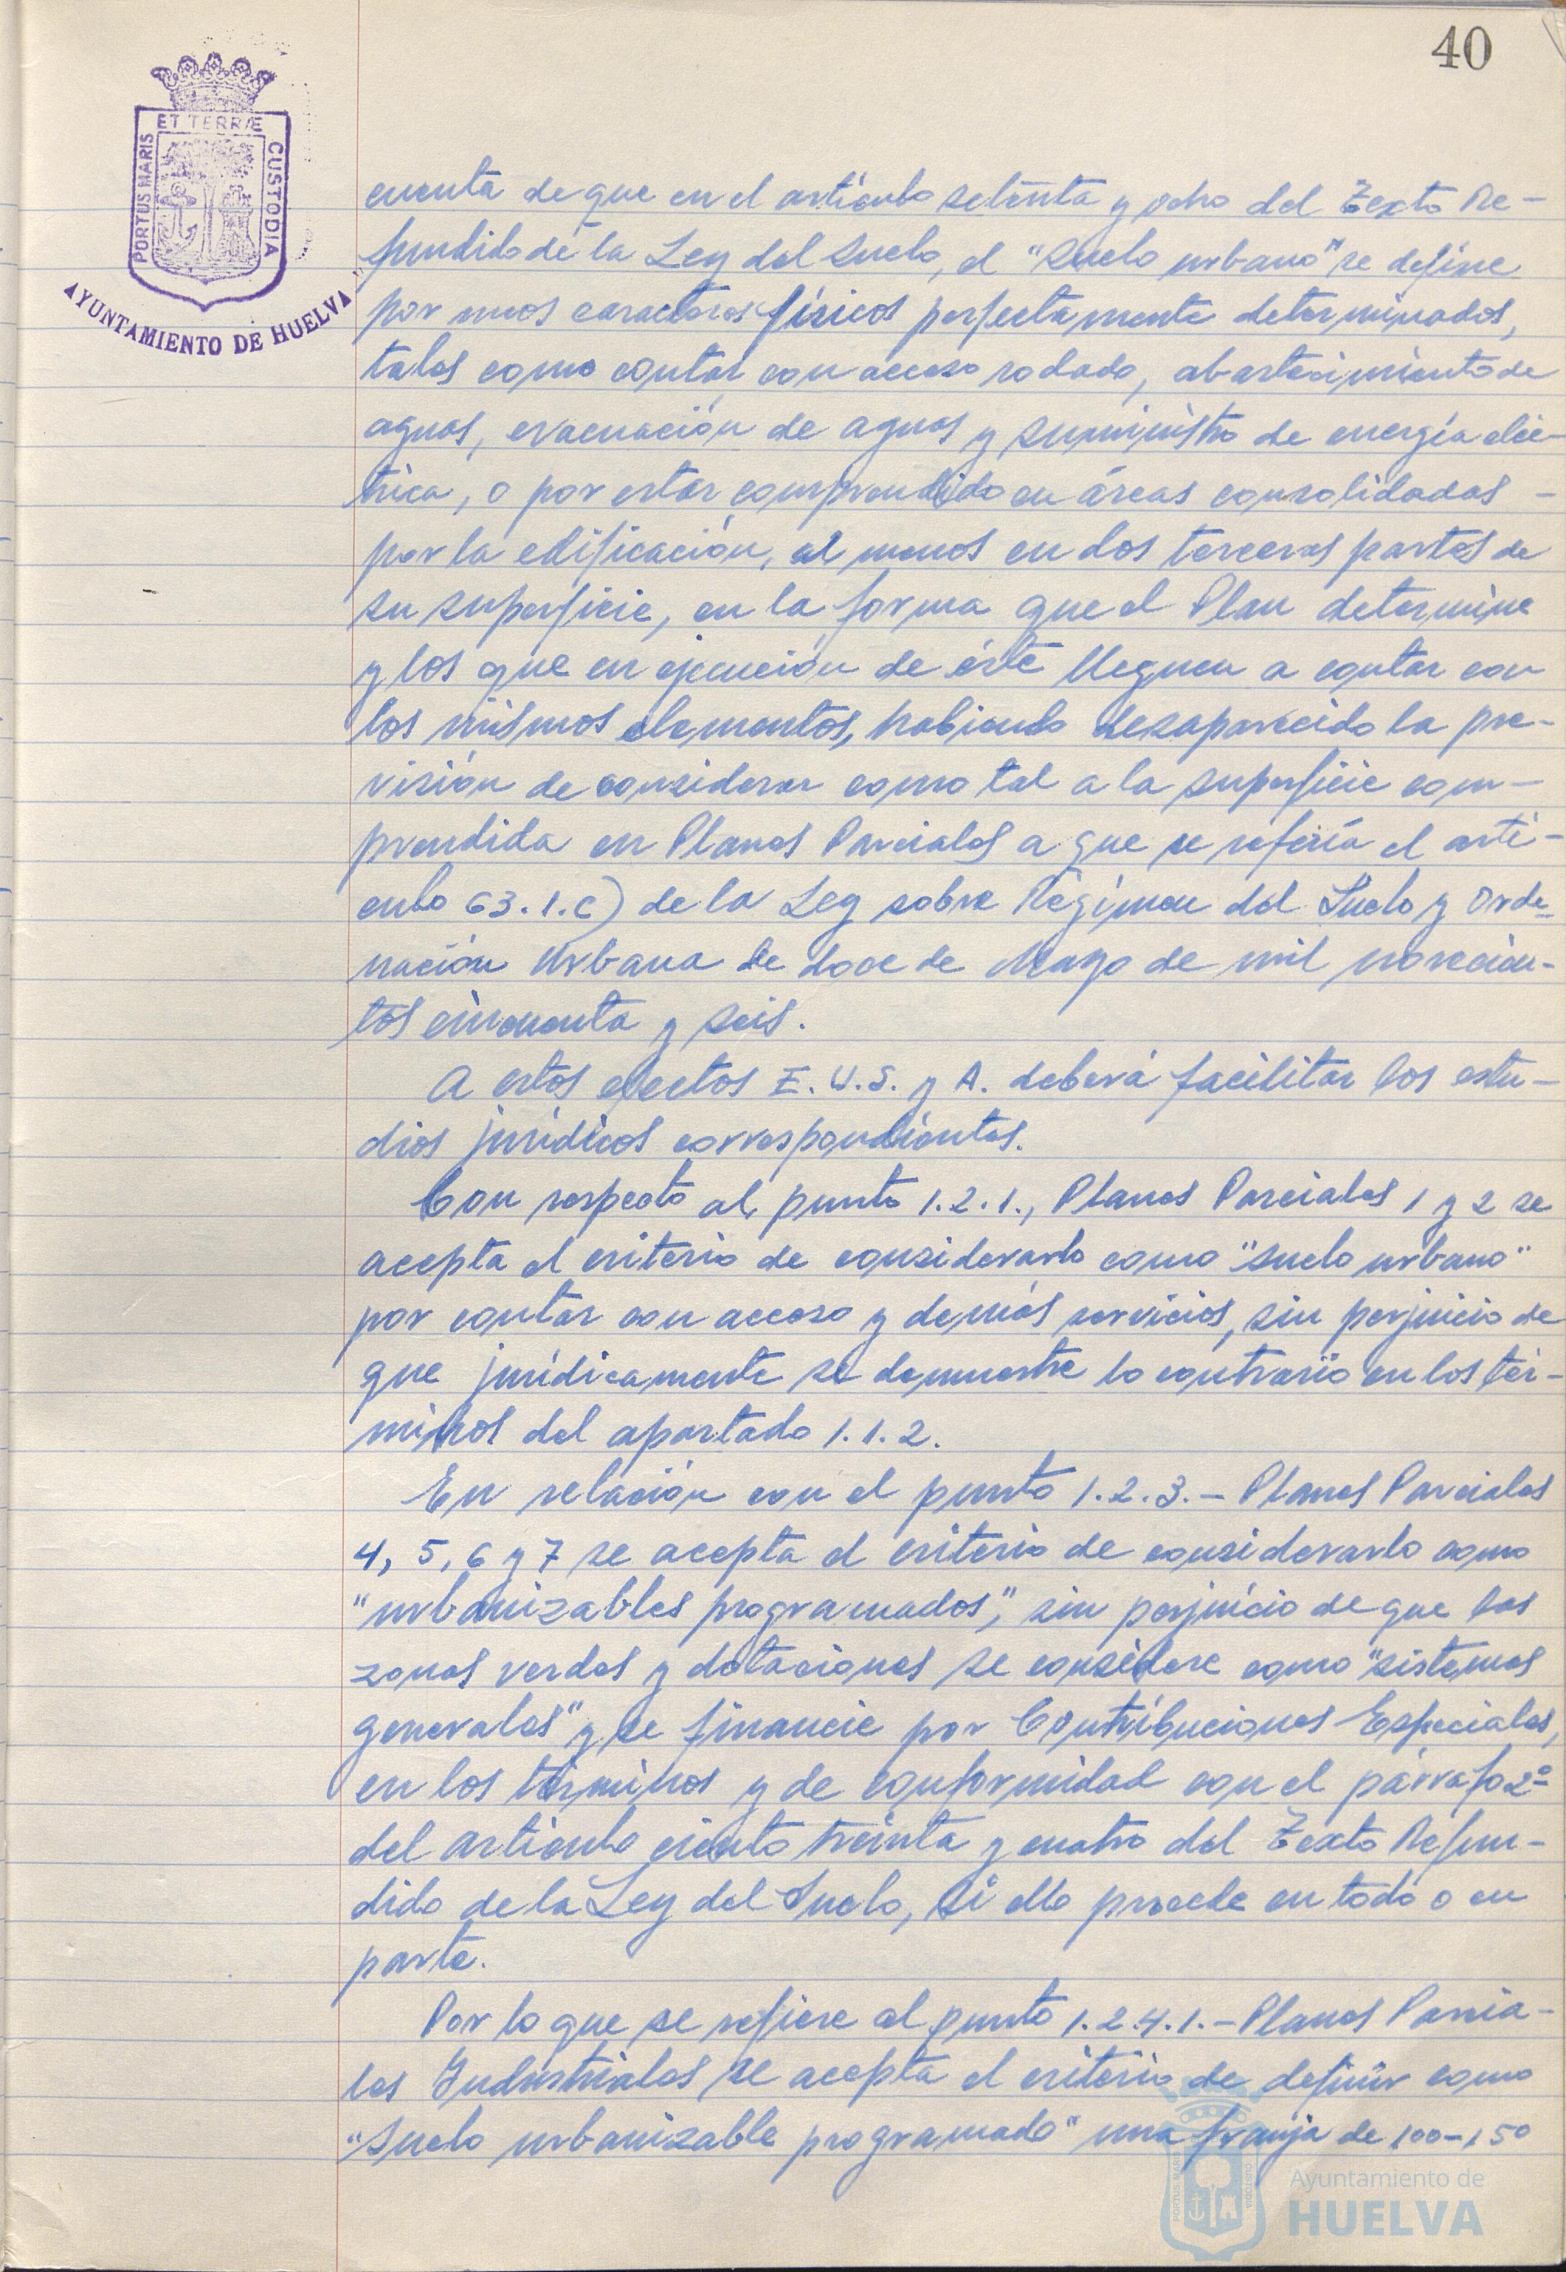 40
ET TERRÆ
PORTUS MARIS
CUSTODIA
AYUNTAMIENTO DE HUELVA
cuenta de que en el artículo setenta y ocho del Texto Re-
fundido de la Ley del Suelo, el "suelo urbano" se define
por unos caracteres físicos perfectamente determinados,
tales como contar con acceso rodado, abastecimiento de
aguas, evacuación de aguas y suministro de energía eléc-
trica, o por estar comprendido en áreas consolidadas -
por la edificación, al menos en dos terceras partes de
su superficie, en la forma que el Plan determine
y los que en ejecución de éste lleguen a contar con
los mismos elementos, habiendo desaparecido la pre-
visión de considerar como tal a la superficie com-
prendida en Planes Parciales a que se refería el artí-
culo 63.1.c) de la Ley sobre Régimen del Suelo y Orde-
nación Urbana de doce de Mayo de mil novecien-
tos cincuenta y seis.
A estos efectos E.U.S. y A. deberá facilitar los estu-
dios jurídicos correspondientes.
Con respecto al punto 1.2.1., Planes Parciales 1 y 2 se
acepta el criterio de considerarlo como "suelo urbano"
por contar con acceso y demás servicios, sin perjuicio de
que jurídicamente se demuestre lo contrario en los tér-
minos del apartado 1.1.2.
En relación con el punto 1.2.3.- Planes Parciales
4, 5, 6 y 7 se acepta el criterio de considerarlo como
"urbanizables programados", sin perjuicio de que las
zonas verdes y dotaciones se considere como "sistemas
generales" y se financie por Contribuciones Especiales,
en los términos y de conformidad con el párrafo 2º
del artículo ciento treinta y cuatro del Texto Refun-
dido de la Ley del Suelo, si ello procede en todo o en
parte.
Por lo que se refiere al punto 1.2.4.1.- Planes Parcia-
les Industriales se acepta el criterio de definir como
"suelo urbanizable programado" una franja de 100-150
PORTUS MARIS
CUSTODIA
Ayuntamiento de
HUELVA